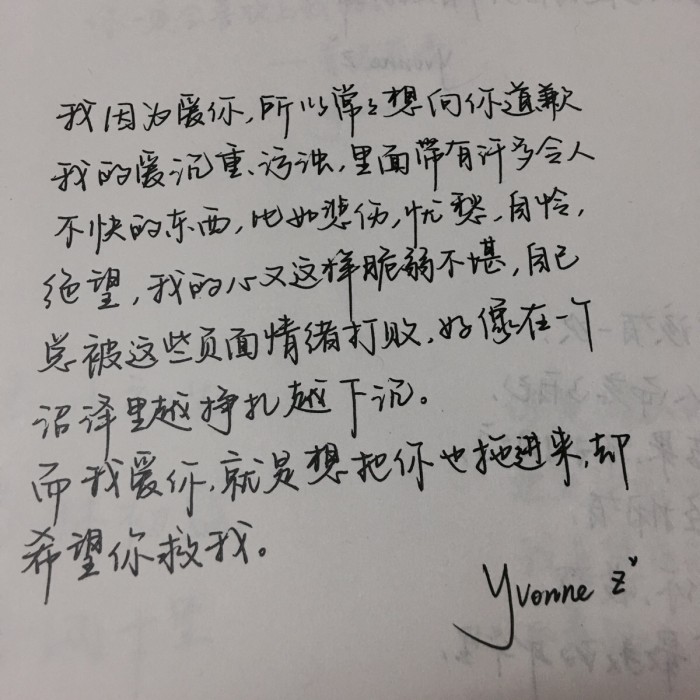 我因为爱你,所以常常想向你道歉
我的爱沉重、污浊,里面带有许多令人
不快的东西,比如悲伤,忧愁,自怜,
绝望,我的心又这样脆弱不堪,自己
总被这些页面情绪打败,好像在一个
沼泽里越挣扎越下沉。
而我爱你,就是想把你也拖进来,却
希望你救我。
Yvonne Z